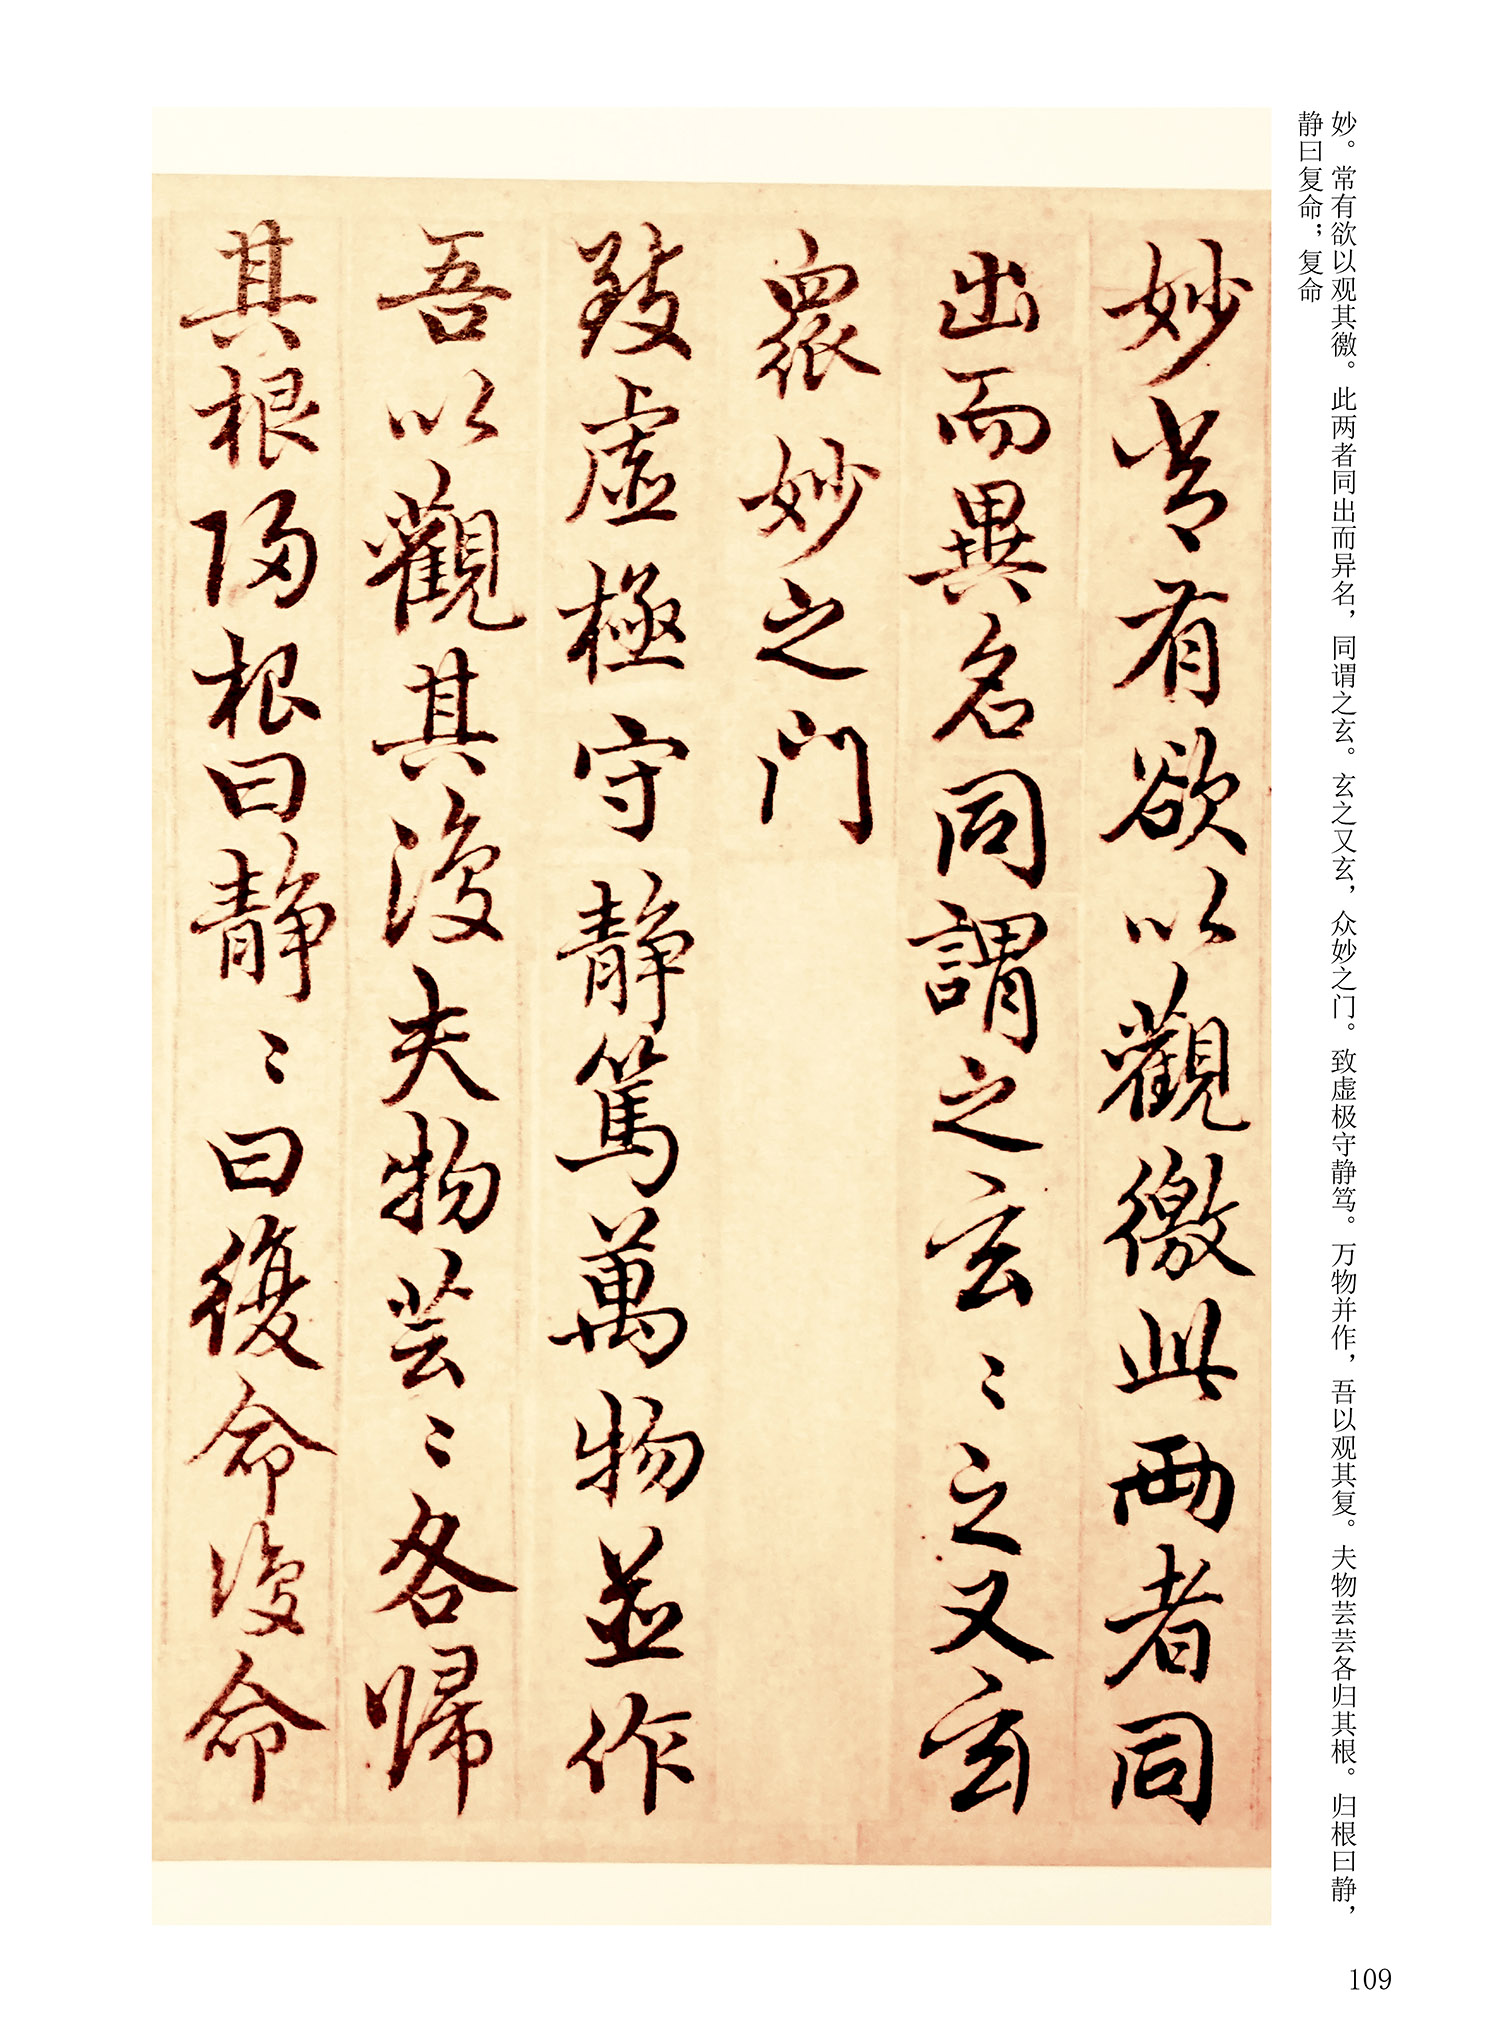 妙。常有欲以观其徼。此两者同出而异名，同谓之玄。玄之又玄，众妙之门。致虚极守静笃。万物并作，吾以观其复。夫物芸芸各归其根。归根曰静，
静曰复命；复命
妙常有欲以觀徼此兩者同
出而異名同謂之玄〻之又玄
衆妙之門
致虛極守靜篤萬物並作
吾以觀其復夫物芸〻各歸
其根歸根曰靜〻曰復命復命
109